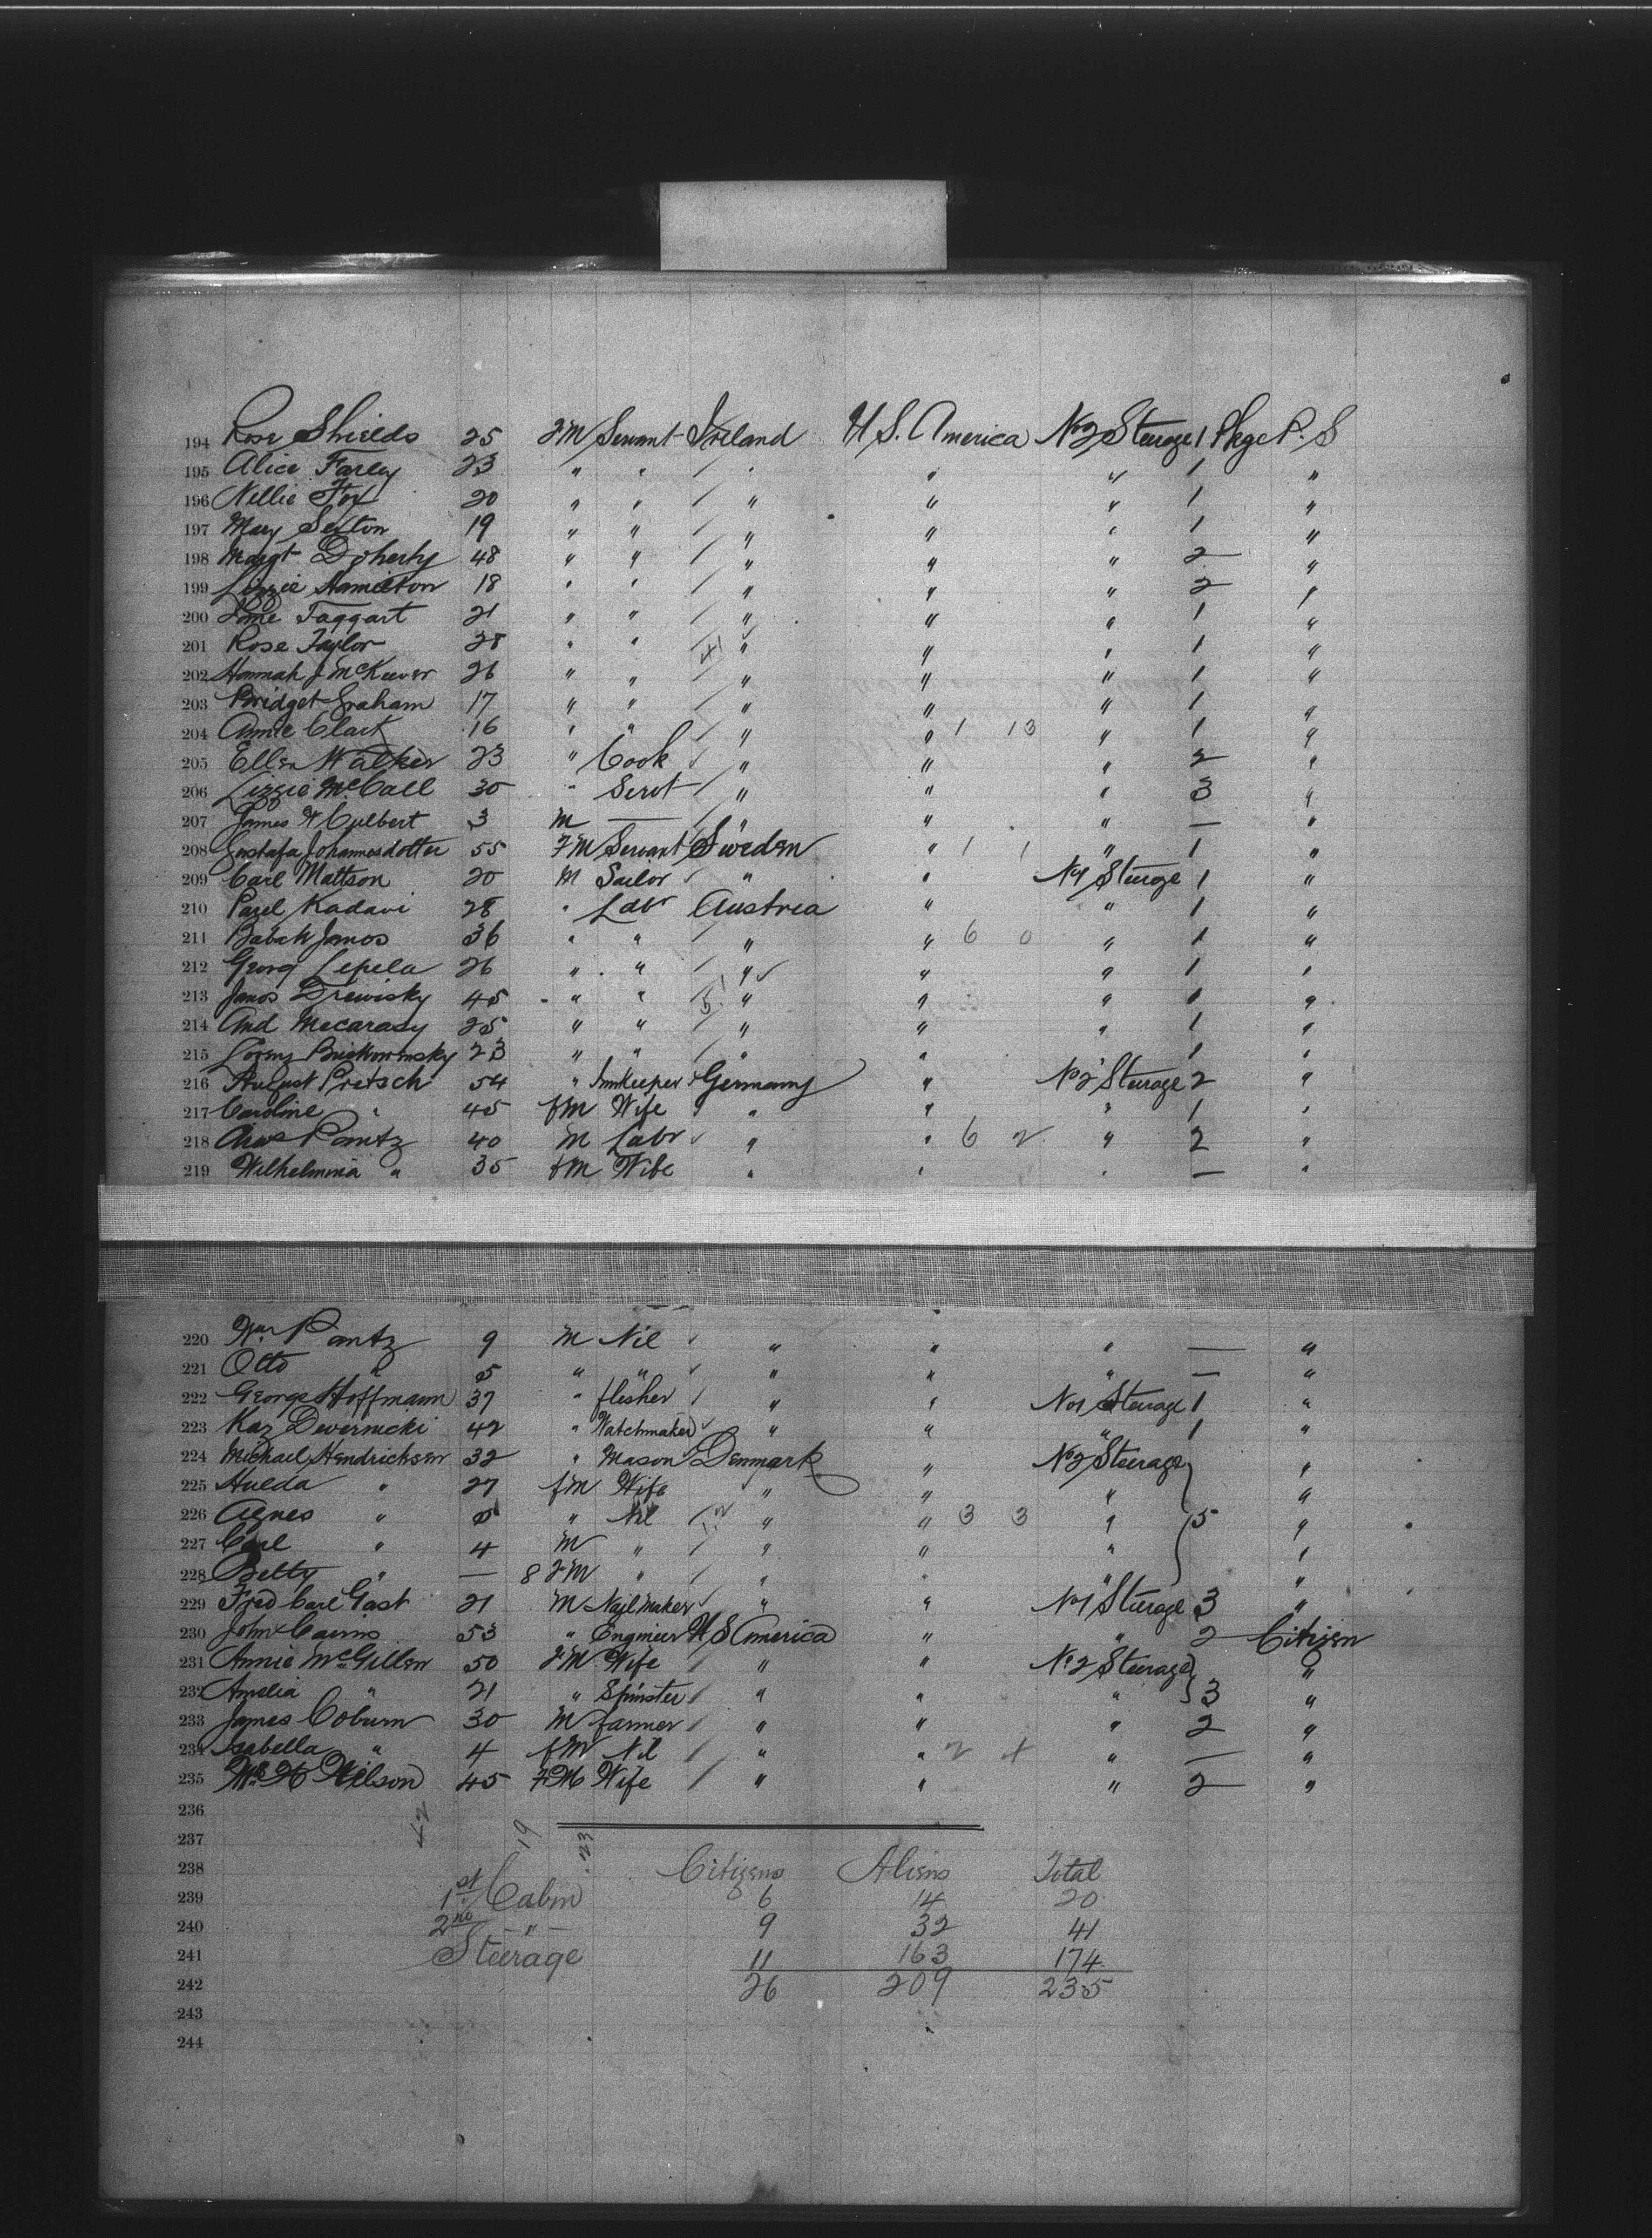 194 Rose Shields 25 FM Servant Ireland U S. America No 2 Steerage 1 Pkge P. S
195 Alice Farley 23 " " / " " " 1 "
196 Nellie Fox 20 " " / " " " 1 "
197 Mary Sexton 19 " " / " " " 1 "
198 Margt Doherty 48 " " / " " " 2 "
199 Lizzie Hamilton 18 " " / " " " 2 "
200 Taggart 21 " " / " " " 1 "
201 Rose Taylor 28 " " / " " " 1 "
202 Hannah J McKeever 26 " " / " " " 1 "
203 Bridget Graham 17 " " / " " " 1 "
204 Annie Clark 16 " " / " " 1 13 " 1 "
205 Ellen Walker 23 " Cook / " " " 2 "
206 Lizzie McCall 30 " Servt / " " " 3 "
207 James W Culbert 3 M — / " " " — "
208 Gustafa Johannesdotter 55 FM Servant Sweden " 1 1 " 1 "
209 Carl Mattson 20 M Sailor " " No 1 Steerage 1 "
210 Pavel Kadavi 28 " Labr Austria " " 1 "
211 Janos 36 " " / " " 6 0 " 1 "
212 Georg Lepela 26 " " / " " " 1 "
213 Janos Drewisky 45 " " / " " " 1 "
214 And Mecarasy 25 " " / " " " 1 "
215 23 " " / " " " 1 "
216 August Pretsch 54 " Innkeeper Germany " No 2 Steerage 2 "
217 Caroline " 45 fM Wife " " " 1 "
218 Pantz 40 M Labr " " 6 2 " 2 "
219 Wilhelmina " 35 fM Wife " " " — "
220 Wm Pantz 9 M Nil " " " — "
221 Otto " 5 " " " " " — "
222 George Hoffmann 37 " flesher / " " No 1 Steerage 1 "
223 Kaz Devernicki 42 " Watchmaker " " " 1 "
224 Michael Hendricksen 32 " Mason Denmark " No 2 Steerage "
225 Hulda " 27 fM Wife " " " "
226 Agnes " 5 " Nil / " " 3 3 " 5 "
227 Carl " 4 M " / " " " "
228 Betty " — 8 FM " / " " " "
229 Fred Carl Gast 21 M Nailmaker " " No 1 Steerage 3 "
230 John Cairns 53 " Engineer U S America " " 2 Citizen
231 Annie McGillen 50 FM Wife / " " No 2 Steerage "
232 Amelia " 21 " Spinster / " " " 3 "
233 James Coburn 30 M farmer / " " " 2 "
234 Isabella " 4 fM Nil / " " 2 4 " — "
235 Mrs H Wilson 45 FM Wife / " " " 2 "
236 42 19 23
237
238 Citizens Aliens Total
239 1st Cabin 6 14 20
240 2nd — " — 9 32 41
241 Steerage 11 163 174
242 26 209 235
243
244